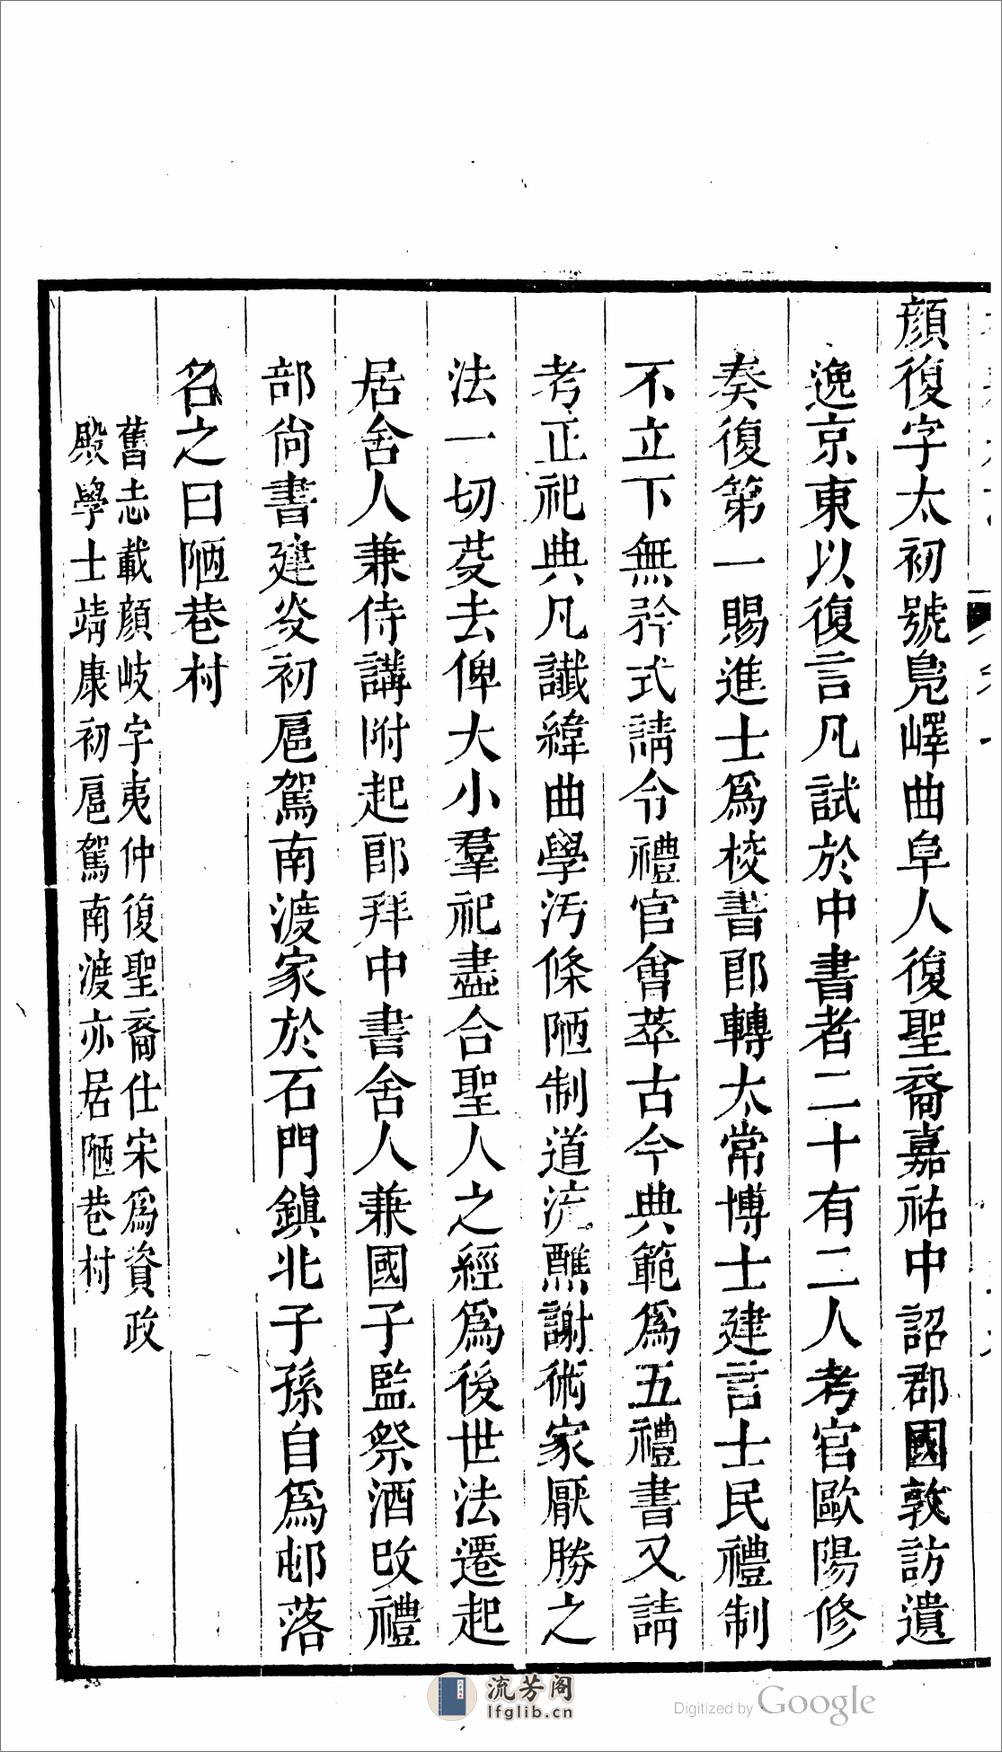 顏復字太初號鳧嶧曲阜人復聖裔嘉祐中詔郡國敦訪遺
逸京東以復言凡試於中書者二十有二人考官歐陽修
奏復第一賜進士爲校書郎轉太常博士建言士民禮制
不立下無矜式請令禮官會萃古今典範爲五禮書又請
考正祀典凡讖緯曲學汚條陋制道流醮謝術家厭勝之
法一切芟去俾大小羣祀盡合聖人之經爲後世法遷起
居舍人兼侍講附起郎拜中書舍人兼國子監祭酒改禮
部尙書建炎初扈駕南渡家於石門鎭北子孫自爲邨落
名之曰陋巷村
舊志載顏岐字夷仲復聖裔仕宋爲資政
殿學士靖康初扈駕南渡亦居陋巷村
流芳阁
lfglib.cn
Digitized by Google